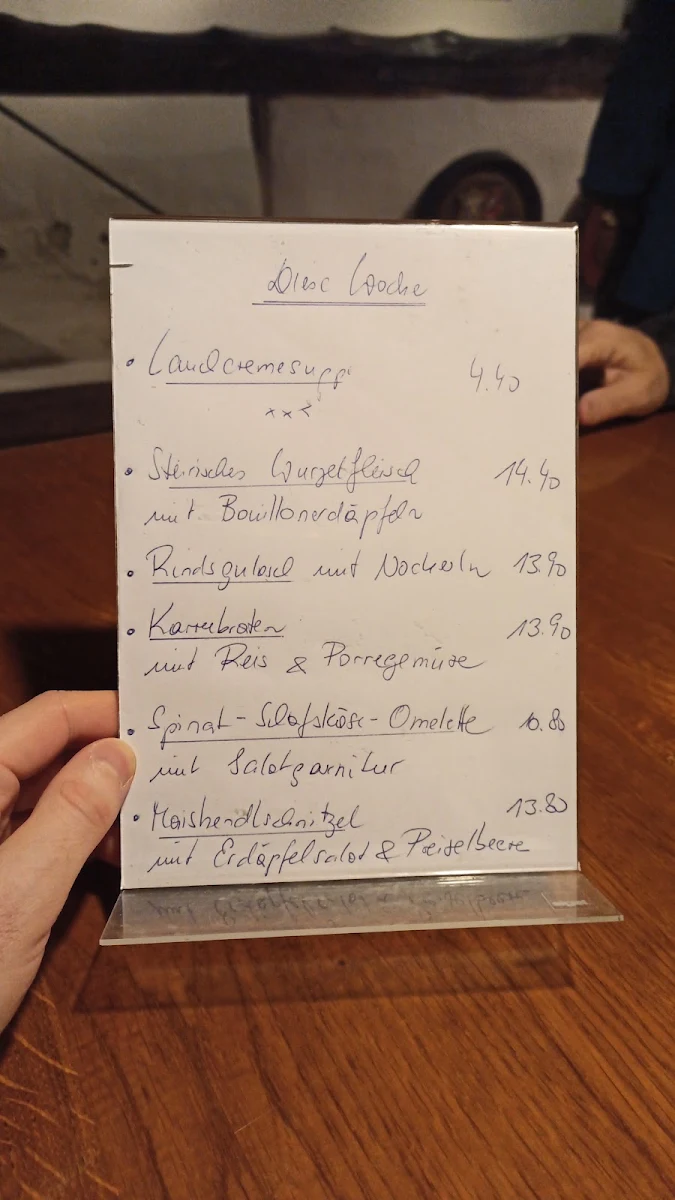 Diese Woche
• Landcremesupp 4.40
xxx
• Steirisches Wurzelfleisch 14.40
mit Bouillonerdäpfeln
• Rindsgulasch mit Nockerln 13.90
• Karreebraten 13.90
mit Reis & Porregemüse
• Spinat-Schafskäse-Omelette 10.80
mit Salatgarnitur
• Maishendlschnitzel 13.80
mit Erdäpfelsalat & Preiselbeere